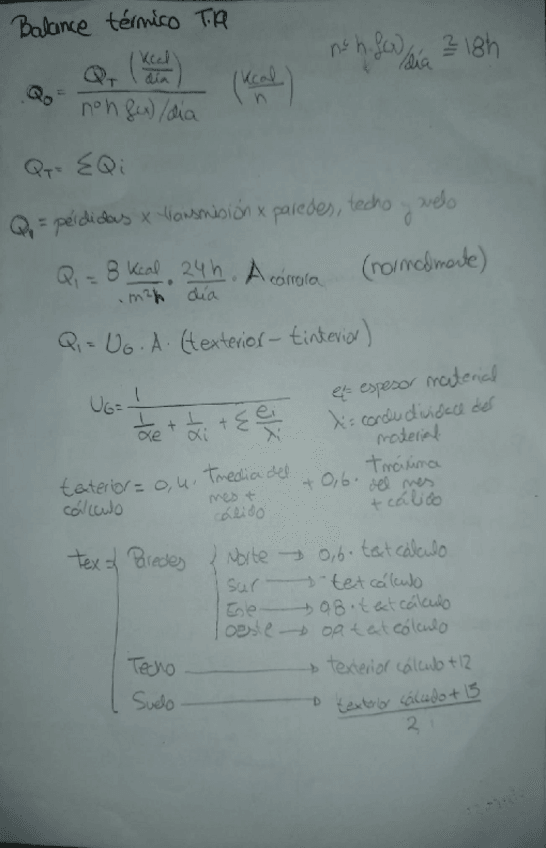 Balance térmico T.A
nº h f(x)/día ≅ 18h
Q₀ = Q_T (Kcal/día) / nº h f(x)/día (Kcal/h)
Q_T = ΣQi
Q₁ = pérdidas x transmisión x paredes, techo y suelo
Q₁ = 8 Kcal/m²h · 24h/día · A cámara (normalmente)
Q₁ = U_G · A · (texterior - tinterior)
U_G = 1 / (1/αe + 1/αi + Σ ei/λi)
ei = espesor material
λi = conductividad del
material
texterior = 0,4 · Tmedia del mes + cálido + 0,6 · Tmáxima del mes + cálido
cálculo
tex = Paredes Norte → 0,6 · text cálculo
Sur → text cálculo
Este → 0,8 · text cálculo
Oeste → 0,9 text cálculo
Techo → texterior cálculo + 12
Suelo → (texterior cálculo + 15) / 2